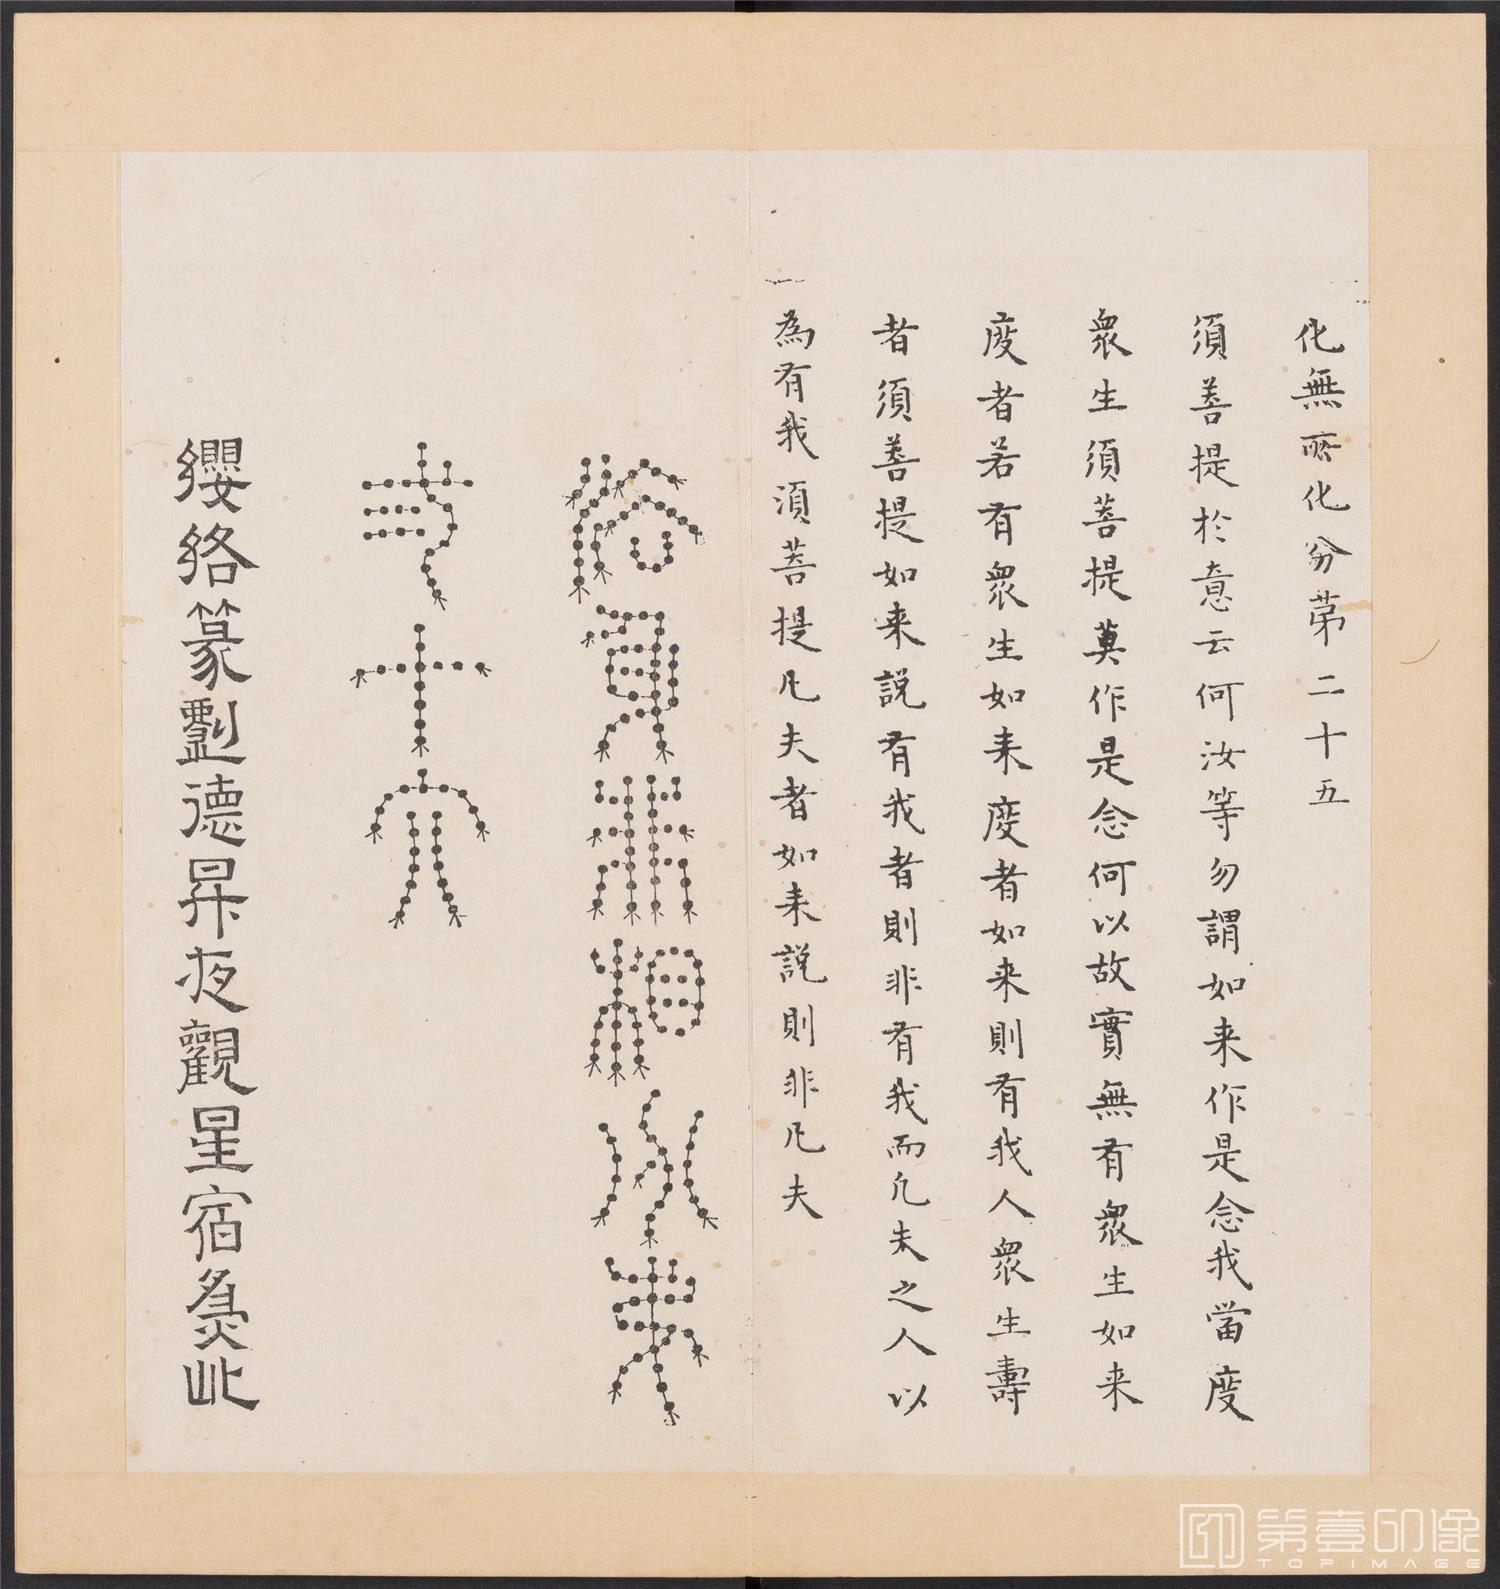 化無所化分第二十五
須菩提於意云何汝等勿謂如来作是念我當度
眾生須菩提莫作是念何以故實無有眾生如来
度者若有眾生如来度者如来則有我人眾生壽
者須菩提如来説有我者則非有我而凡夫之人以
為有我須菩提凡夫者如来説則非凡夫
法身非相分第
弍十六
纓絡篆劉德昇夜觀星宿為此
第壹印像
TOPIMAGE